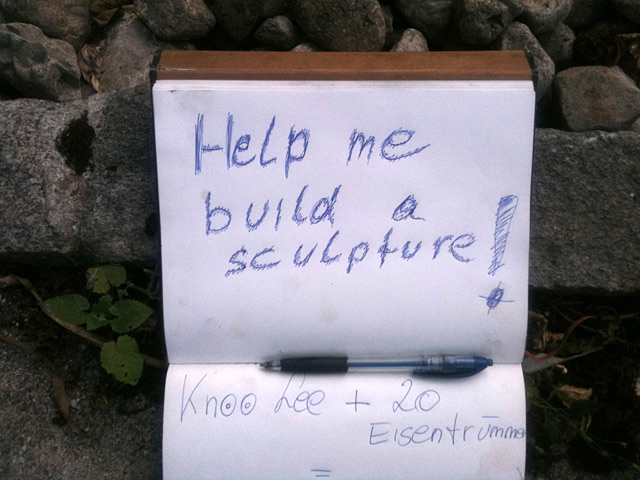 Help me
build a
sculpture!
Knoo Lee + 20
Eisentrümmer
=